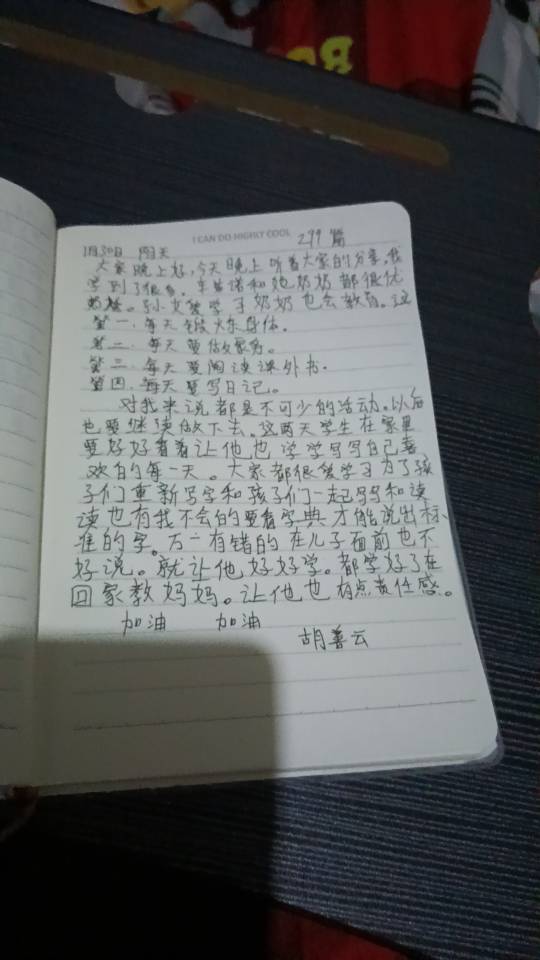 I CAN DO HIGHLY COOL
299篇
1月30日 阴天
大家晚上好,今天晚上听着大家的分享,我
学到了很多。和她奶奶都很优
奶奶也会教育。这
第一.每天锻炼身体。
第二.每天要做家务。
第三.每天要阅读课外书.
第四.每天要写日记。
对我来说都是不可少的活动。以后
也要继续做下去。这两天学生在家里
要好好看着让他也学学习写自己喜
欢自的每一天。大家都很爱学习为了孩
子们重新写字和孩子们一起写写和读
读也有我不会的要看字典才能说出标
准的字。万一有错的在儿子面前也不
好说。就让他好好学。都学好了在
回家教妈妈。让他也有点责任感。
加油 加油
胡善云